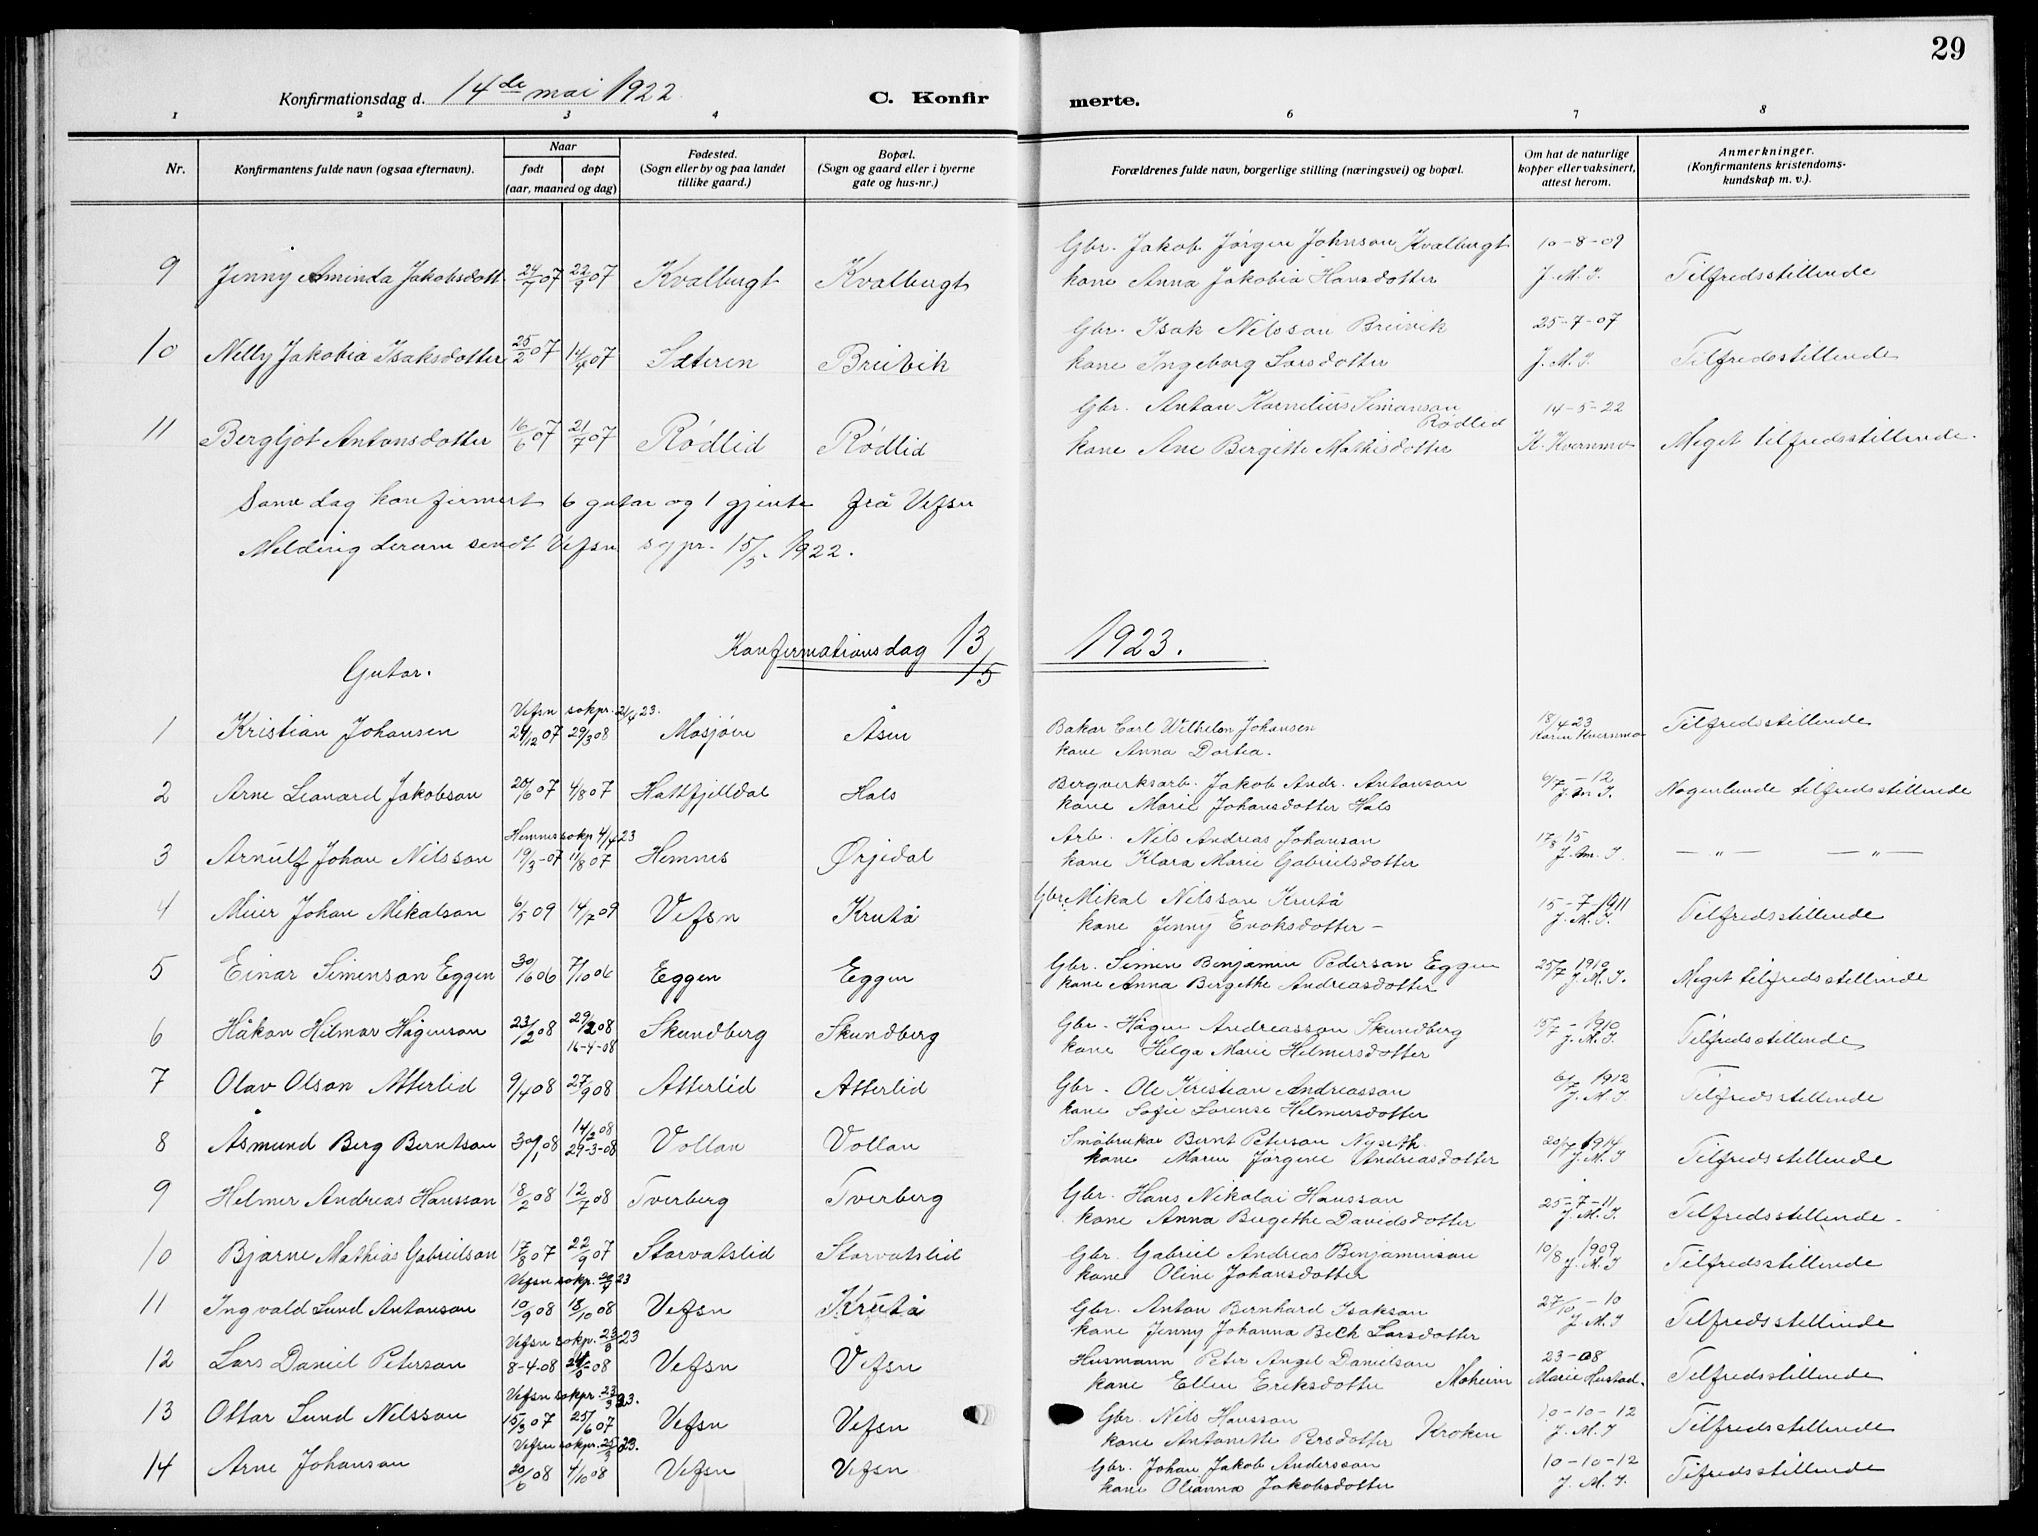 29
Konfirmationsdag d. 14de mai 1922. C. Konfir merte.
1 2 3 4 5 6 7 8
Nr. Konfirmantens fulde navn (ogsaa efternavn). Naar født døpt (aar, maaned og dag) Fødested. (Sogn eller by og paa landet tillike gaard.) Bopæl. (Sogn og gaard eller i byerne gate og hus-nr.) Forældrenes fulde navn, borgerlige stilling (næringsvei) og bopæl. Om hat de naturlige kopper eller vaksinert, attest herom. Anmerkninger. (Konfirmantens kristendoms-kundskap m. v.).
Gbr. Jakob Jørgen Johnson Kvalbugt 10-8-09
9 Jenny Aminda Jakobsdott. 24/7 07 22/9 07 Kvalbugt Kvalbugt kone Anna Jakobia Hansdotter J. M. I. Tilfredsstillende
Gbr. Isak Nilsson Breivik 25-7-07
10 Nelly Jakobia Isaksdotter 25/2 07 14/4 07 Sæteren Breivik kone Ingeborg Larsdotter J. M. I. Tilfredsstillende
Gbr. Anton Kornelius Simonson Rødlid 14-5-22
11 Bergljot Antonsdotter 16/6 07 21/7 07 Rødlid Rødlid kone Ane Bergitte Mathisdotter K. Kvernmo Meget tilfredsstillende.
Same dag konfirmert 6 gutar og 1 gjente frå Vefsn
Melding derom sendt Vefsn sypr. 15/5. 1922.
Konfirmationsdag 13/5 1923.
Gutar.
Vefsn sokpr. 21/4 23.
1 Kristian Johansen 24/12 07 29/3 08 Mosjøen Åsen Bakar Carl Wilhelm Johansen 18/4 23 Tilfredsstillende
kone Anna Dortea. Karen Kvernmo
2 Arne Leonard Jakobson 20/6 07 4/8 07 Hattfjelldal Hals Bergverksarb. Jakob Andr. Antonson 6/7 - 12 Nogenlunde tilfredsstillende
kone Marie Johansdotter Hals J. M. I.
Hemnes sokp 4/4 23
3 Arnulf Johan Nilsson 19/3-07 11/8 07 Hemnes Ørjedal Arb. Nils Andreas Johanson 17/8 15 — „ — — „ —
kone Klara Marie Gabrielsdotter J. M. I.
4 Meier Johan Mikalson 6/5 09 14/7 09 Vefsn Krutå Gbr. Mikal Nilsson Krutå 15-7-1911 Tilfredsstillende
kone Jenny Enoksdotter - J. M. I.
5 Einar Simenson Eggen 30/6 06 7/10 06 Eggen Eggen Gbr. Simen Benjamin Pederson Eggen 25/7 1910 Meget tilfredsstillende
kone Anna Bergethe Andreasdotter J. M. I.
6 Håkon Hilmar Hågenson 23/2 08 29/3 08 Skundberg Skundberg Gbr. Hågen Andreasson Skundberg 15/7 - 1910 Tilfredsstillende
16-4-08 kone Helga Marie Helmersdotter J. M. I.
7 Olav Olson Atterlid 9/4 08 27/9 08 Atterlid Atterlid Gbr. Ole Kristian Andreasson 6/7 1912 Tilfredsstillende
kone Sofie Lorense Helmersdotter J. M. I.
14/2 08
8 Åsmund Berg Berntson 30/1 08 29-3-08 Vollan Vollan Småbrukar Bernt Peterson Nyseth. 20/7 1914 Tilfredsstillende
kone Maren Jørgine Andreasdotter J. M. I
9 Helmer Andreas Hansson 18/2 08 12/7 08 Tverberg Tverberg Gbr. Hans Nikolai Hansson 25-7-11 Tilfredsstillende.
kone Anna Bergethe Davidsdotter J. M. I.
10 Bjarne Mathias Gabrielson 17/8 07 22/9 07 Storvatslid Storvatslid Gbr. Gabriel Andreas Benjaminson 10/8 1909 Tilfredsstillende
kone Oline Johansdotter J. M. I
Vefsn sokp. 23
11 Ingvald Lund Antonson 10/9 08 18/10 08 Vefsn Krutå Gbr. Anton Bernhard Isakson 27/10 - 10 Tilfredsstillende
kone Jenny Johanna Bech Larsdotter J. M. I
Vefsn sokpr. 23/3 23
12 Lars Daniel Peterson 8-4-08 Vefsn Vefsn Husmann Peter Angel Danielson 23-08 Tilfredsstillende
kone Ellen Eriksdotter Moheim Marie Hustad.
Vefsn sokpr. 23/3 23.
13 Ottar Lund Nilsson 15/3 07 25/6 07 Vefsn Vefsn Gbr. Nils Hansson 10-10-12 Tilfredsstillende
kone Antonette Persdotter Kroken J. M. I
Vefsn sokpr. 23.
14 Arne Johanson 20/6 08 4/10 08 Vefsn Vefsn Gbr. Johan Jakob Andersson 10-10-12 Tilfredsstillende
kone Olianna Jakobsdotter J. M. I.